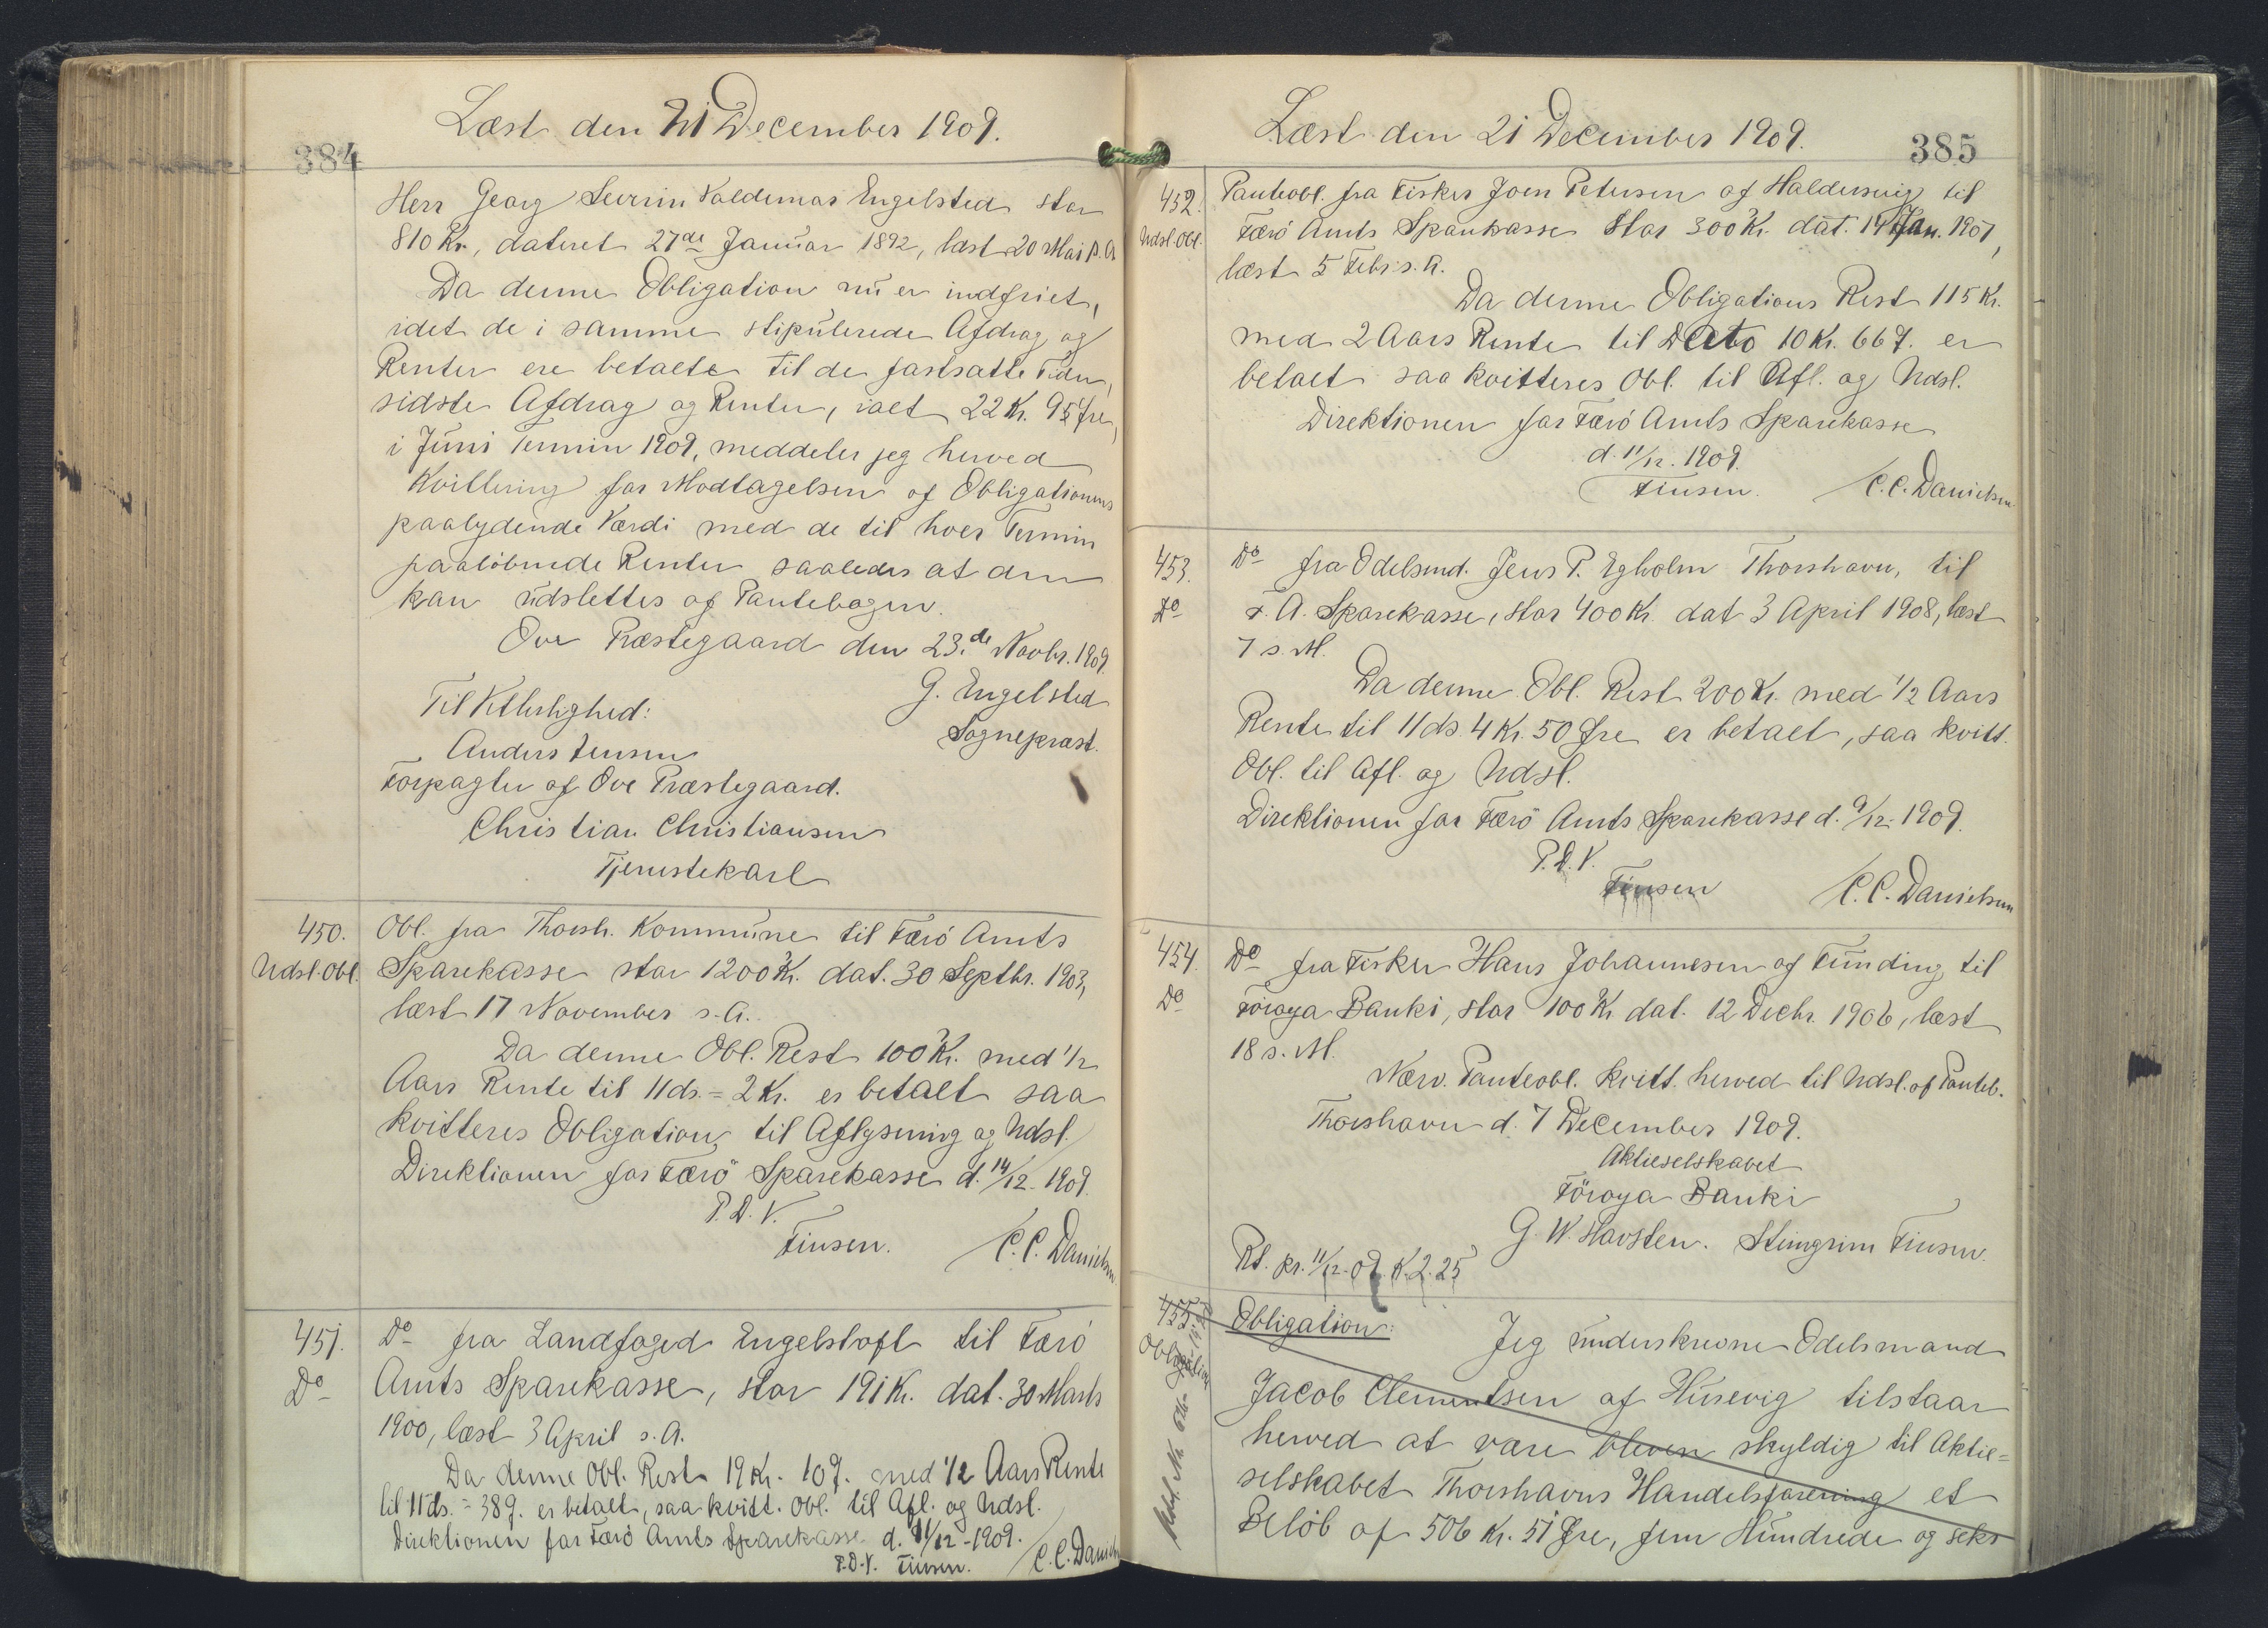 Læst den 21 December 1909.
384
Herr Georg Severin Valdemar Engelsted stor
810 Kr., dateret 27de Januar 1892, læst 20 Mai s. A.
Da denne Obligation nu er indfriet,
idet de i samme stipulerede Afdrag og
Renter ere betalte til de fastsatte Tider,
sidste Afdrag og Renter, ialt 22 Kr. 95 Øre,
i Juni Termin 1909, meddeler jeg herved
Kvittering for Modtagelsen af Obligationens
paalydende Værdi med de til hver Termin
paaløbende Renter saaledes at den
kan udslettes af Pantebogen.
Ove Præstegaard den 23.de Novbr. 1909.
G. Engelsted
Sognepræst.
Til Vitterlighed:
Anders Jensen
Forpagter af Ove Præstegaard.
Christian Christiansen
Tjenestekarl
450. Obl. fra Thorsh. Kommune til Færö Amts
Udsl. Obl. Sparekasse stor 1200 Kr. dat. 30 Septbr. 1903,
læst 17 November s. A.
Da denne Obl. Rest 100 Kr. med 1/2
Aars Rente til 11 ds. = 2 Kr. er betalt saa
kvitteres Obligation til Aflysning og Udsl.
Direktionen for Færö Sparekasse d. 14/12 - 1909.
P. D. V.
Finsen. C. C. Danielsen
451. Do fra Landfoged Engelstoft til Færö
Do Amts Sparekasse, stor 191 Kr. dat. 30 Marts
1900, læst 3 April s. A.
Da denne Obl. Rest 19 Kr. 10 Ø. med 1/2 Aars Rente
til 11 ds. = 38 Ø. er betalt, saa kvitt. Obl. til Afl. og Udsl.
Direktionen for Færö Amts Sparekasse d. 11/12 - 1909.
P. D. V. Finsen. C. C. Danielsen
Læst den 21 December 1909.
385
452. Panteobl. fra Fisker Joen Petersen af Haldersvig til
Udsl. Obl. Færö Amts Sparekasse stor 300 Kr. dat. 14 Jan. 1907,
læst 5 Febr. s. A.
Da denne Obligations Rest 115 Kr.
med 2 Aars Rente til Dato 10 Kr. 66 Ø. er
betalt saa kvitteres Obl. til Afl. og Udsl.
Direktionen for Færö Amts Sparekasse
d. 11/12. 1909.
Finsen. C. C. Danielsen
453. Do fra Odelsmd. Jens P. Egholm Thorshavn, til
Do F. A. Sparekasse, stor 400 Kr. dat 3 April 1908, læst
7 s. M.
Da denne Obl. Rest 200 Kr. med 1/2 Aars
Rente til 11 ds. 4 Kr. 50 Øre er betalt, saa kvitt.
Obl. til Afl. og Udsl.
Direktionen for Færö Amts Sparekasse d. 9/12 - 1909.
P. D. V.
Finsen C. C. Danielsen
454. Do fra Fisker Hans Johannesen af Funding til
Do Föroya Banki, stor 100 Kr. dat. 12 Decbr. 1906, læst
18 s. M.
Nærv. Panteobl. kvitt. herved til Udsl. af Panteb.
Thorshavn d. 7 December 1909.
Aktieselskabet
Föroya Banki
G. W. Havsten. Steingrim Finsen.
Rt. pr. 11/12-09. K. 2.25
455. Obligation: Jeg underskrevne Odelsmand
Obligation
Jacob Clementsen af Husevig tilstaar
herved at være bleven skyldig til Aktie=
selskabet Thorshavns Handelsforening et
Beløb af 506 Kr. 51 Øre, fem Hundrede og seks